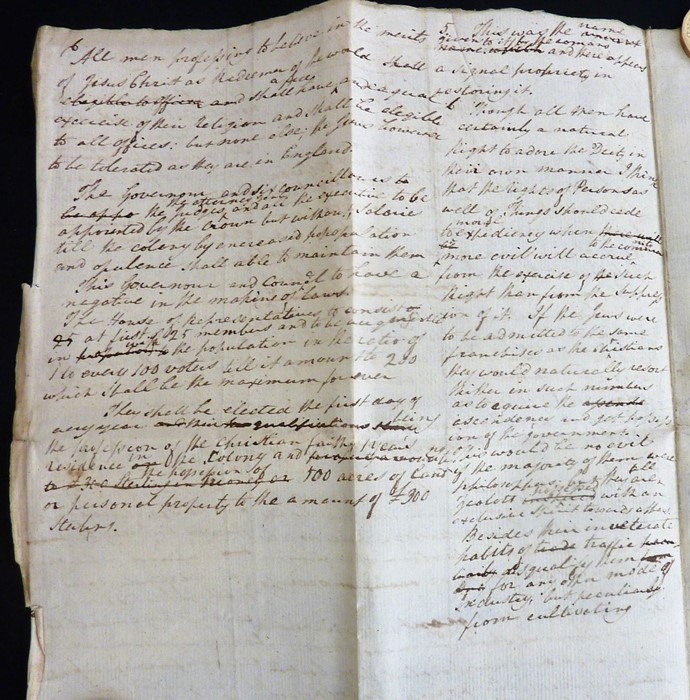 6 All men professing to believe in the merits
of Jesus Christ as Redeemer of the world shall
eligible to offices and shall have a free and equal
exercise of their Religion and shall be elegible
to all offices: but none else; the Jews however
to be tolerated as they are in England
The Governour and six councillors is to
be appo the Judges, the attorney Gen and all the executive to be
appointed by the Crown but without Salarie
till the colony by an encreased popopulation
and opulence shall able to maintain them
This Governour and Council to have a
negative in the making of laws
The House of representatives to consist
25 at first of 25 members and to be augmented
in with the population in the ratio of
1 to every 100 voters till it amount to 200
which shall be the maximum for ever
They shall be elected the first day of
every year and their qualifications being
the profession of the Christian faith, years
residence in the Colony and
the possession of or 500 acres of land
or personal property to the amount of £300
Sterling.
5. This way the name
and there appears
a signal propriety in
restoring it.
6 Though all men have
certainly a natural
right to adore the Deity in
their own manner I think
that the rights of Persons as
well of Things should cede
to expediency when
to the community
more evil will accrue
from the exercise of the such
right than from the suppres
ion of it. If the Jews were
to be admitted to the same
franchises as the Christians
they would naturally resort
thither in such numbers
as to acquire the ascends
ascendency and get posses
ion of the government
This would be no evil
if the majority of them were
philosophers; but they are all
zealots with an
exclusive spirit towards others
Besides their inveterate
habits of trade traffic
disqualify them
for any other mode of
Industry, but peculiarly
from cultivating